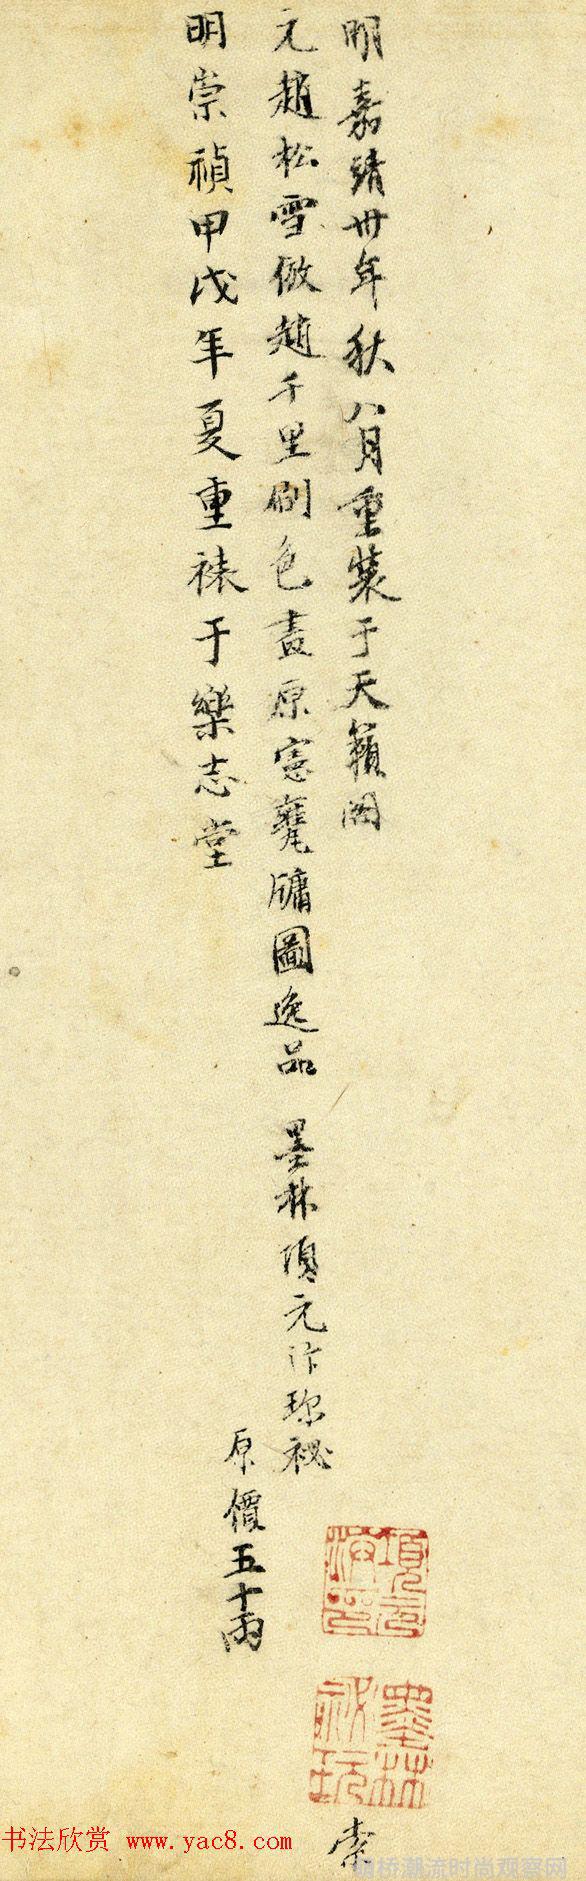 明嘉靖卅年秋八月重裝于天籟閣
元趙松雪倣趙千里刷色畫原憲甕牖圖逸品 墨林項元汴珍祕
原價五十兩
明崇禎甲戌年夏重裱于樂志堂
項元汴印
墨林祕玩
書法欣赏 www.yac8.com
桥潮流时尚观察网